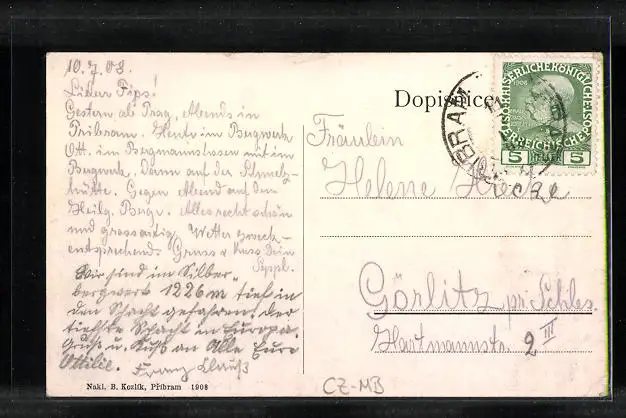 10.7.08.
Lieber Pips!
Gestern ab Prag, Abends in
Pribram. Heute im Bergwerk
Ott. im Bergmannsdress mit im
Bergwerk, dann auf der Schmelz-
hütte. Gegen Abend auf dem
Heilg. Berge. Alles recht schön
und grossartig. Wetter zweck-
entsprechend. Gruss u. Kuss Dein
Seppl.
Wir sind im Silber-
bergwerk 1226 m tief in
den Schacht gefahren, der
tiefste Schacht in Europa.
Gruß u. Kuß an Alle Eure
Ottilie. Franz Clauß
Nakl. B. Kozlík, Příbram 1908
Dopisnice
PŘIBRAM
5 HELLER 5
Fräulein
Helene
Görlitz pr. Schles.
Hartmannstr. 2 III
CZ-MB